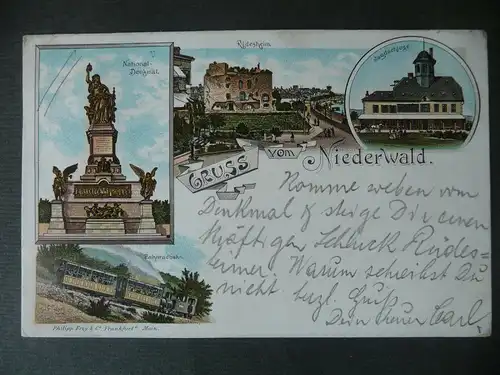 National-
Denkmal.
Rüdesheim.
Jagdschloss.
GRUSS VOM Niederwald.
Komme soeben vom
Denkmal & steige Dir einen
kräftigen Schluck Rüdes-
heimer. Warum schreibst Du
nicht bezl. Gruß
Dein treuer Carl
Zahnradbahn.
Philipp Frey & Co. Frankfurt a. Main.